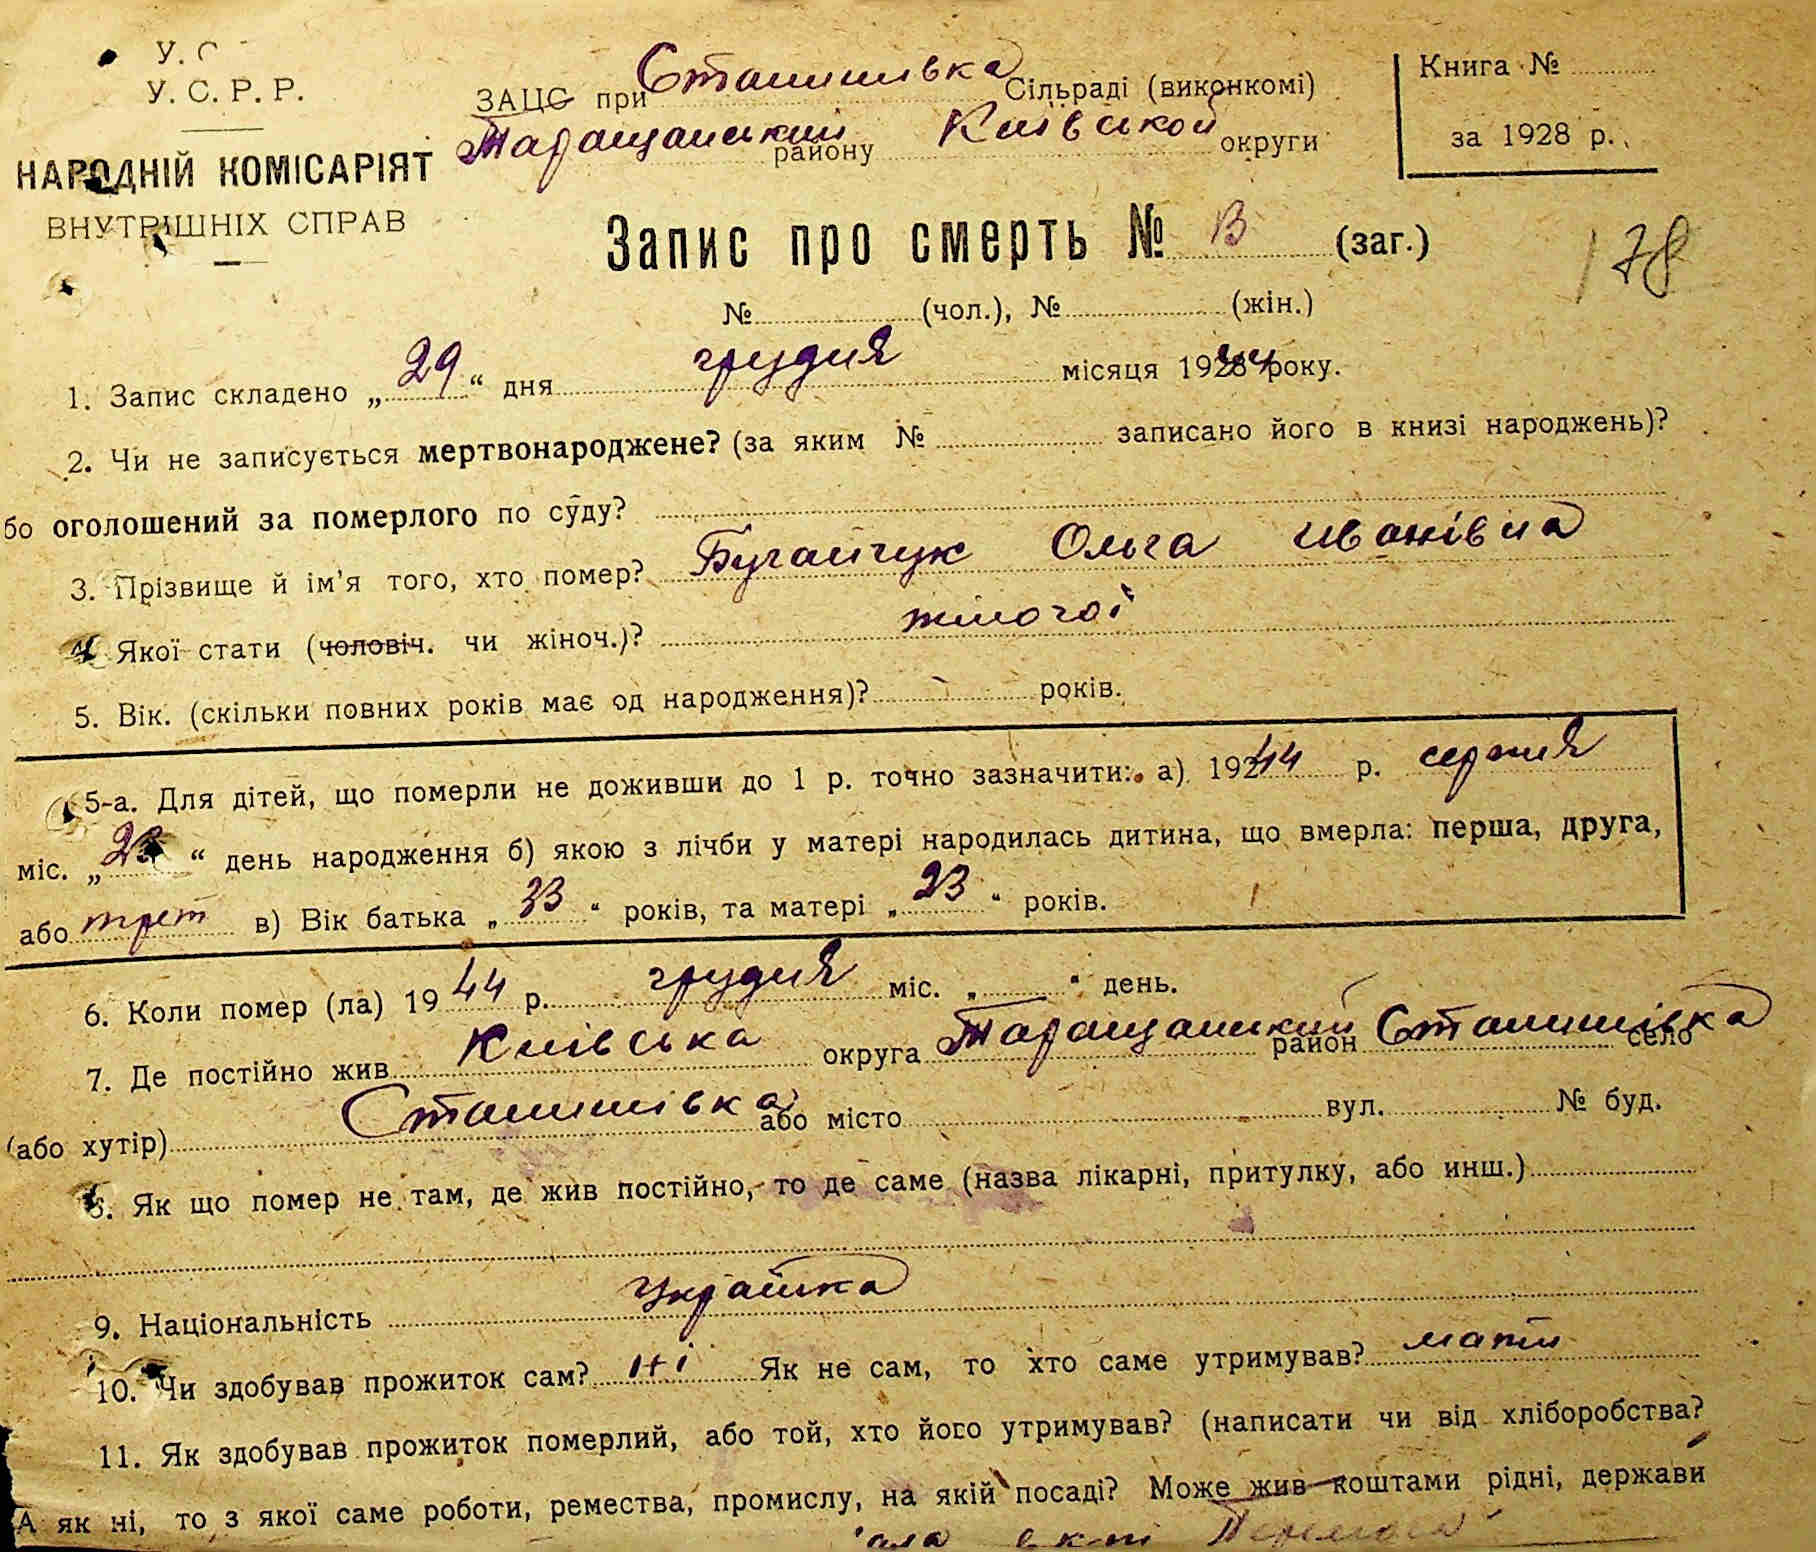 У. С
У. С. Р. Р.
НАРОДНІЙ КОМІСАРІЯТ
ВНУТРІШНІХ СПРАВ
ЗАЦС при Станишівка Сільраді (виконкомі)
Таращанський району Київської округи
Книга №
за 1928 р.
Запис про смерть № В (заг.)
178
№ (чол.), № (жін.)
1. Запис складено „29“ дня грудня місяця 192844 року.
2. Чи не записується мертвонароджене? (за яким № записано його в книзі народжень)?
бо оголошений за померлого по суду?
3. Прізвище й ім'я того, хто помер? Бугайчук Ольга Иванівна
4. Якої стати (чоловіч. чи жіноч.)? жіночої
5. Вік. (скільки повних років має од народження)? років.
5-а. Для дітей, що померли не доживши до 1 р. точно зазначити: а) 19244 р. серпня
міс. „23“ день народження б) якою з лічби у матері народилась дитина, що вмерла: перша, друга,
або трет в) Вік батька „33“ років, та матері „23“ років.
6. Коли помер (ла) 1944 р. грудня міс. „ “ день.
7. Де постійно жив Київська округа Таращанский район Станишівка село
(або хутір) Станишівка або місто вул. № буд.
8. Як що помер не там, де жив постійно, то де саме (назва лікарні, притулку, або инш.)
9. Національність Украінка
10. Чи здобував прожиток сам? ні Як не сам, то хто саме утримував? мати
11. Як здобував прожиток померлий, або той, хто його утримував? (написати чи від хліборобства?
А як ні, то з якої саме роботи, ремества, промислу, на якій посаді? Може жив коштами рідні, держави